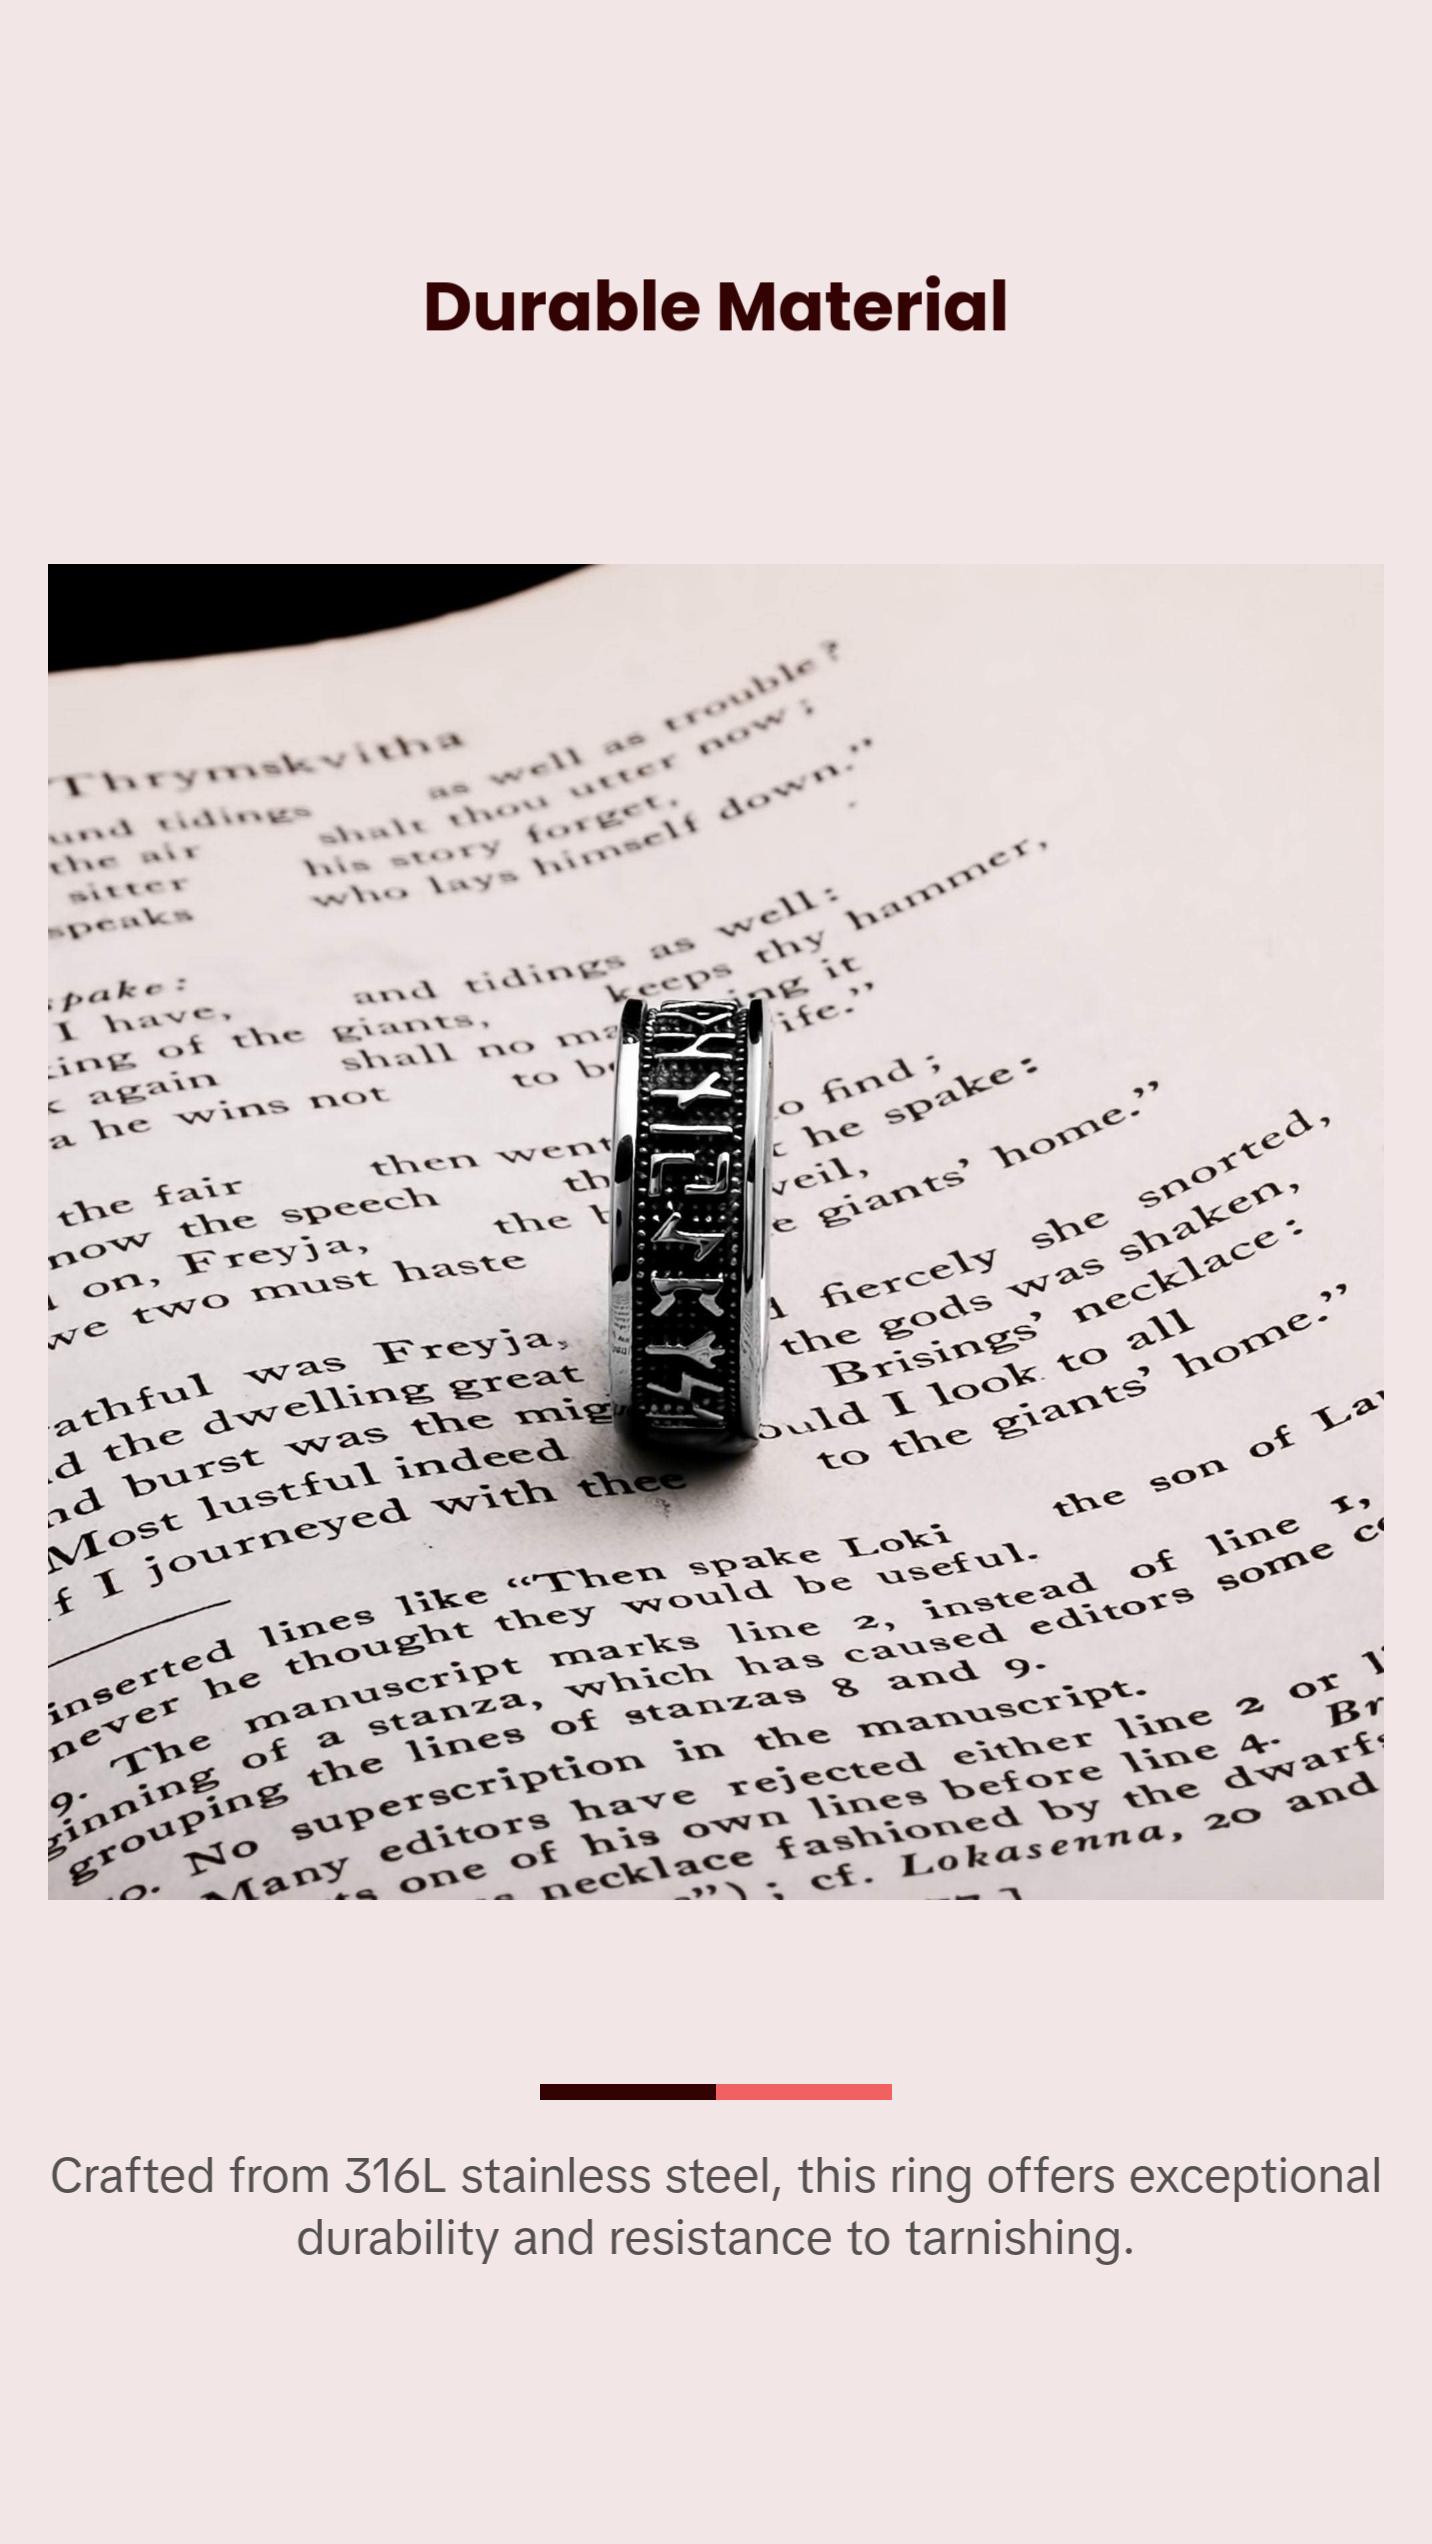 Durable Material
Thrymskvitha
und tidings as well as trouble?
the air shalt thou utter now;
sitter his story forget,
speaks who lays himself down.”
spake:
I have, and tidings as well:
king of the giants, keeps thy hammer,
again shall no ing it
a he wins not to ife.”
the fair then went o find;
now the speech he spake:
on, Freyja, the veil,
we two must haste giants’ home.”
athful was Freyja, fiercely she snorted,
the dwelling great the gods was shaken,
nd burst was the mig Brisings’ necklace:
Most lustful indeed ould I look to all
f I journeyed with thee to the giants’ home.”
inserted lines like “Then spake Loki the son of
never he thought they would be useful.
9. The manuscript marks line 2, instead of line 1,
ginning of a stanza, which has caused editors some
grouping the lines of stanzas 8 and 9.
No superscription in the manuscript.
Many editors have rejected either line 2 or
one of his own lines before line 4. Br
necklace fashioned by the dwarfs
cf. Lokasenna, 20 and
Crafted from 316L stainless steel, this ring offers exceptional
durability and resistance to tarnishing.